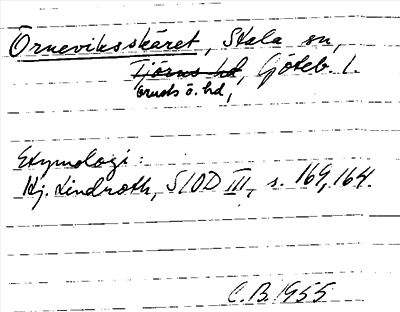 Örneviksskäret, Skala sn,
Tjörns hd, Göteb. l.
Orusts ö. hd,
Etymologi:
Hj. Lindroth, SIOD III, s. 169, 164.
C.B. 1955